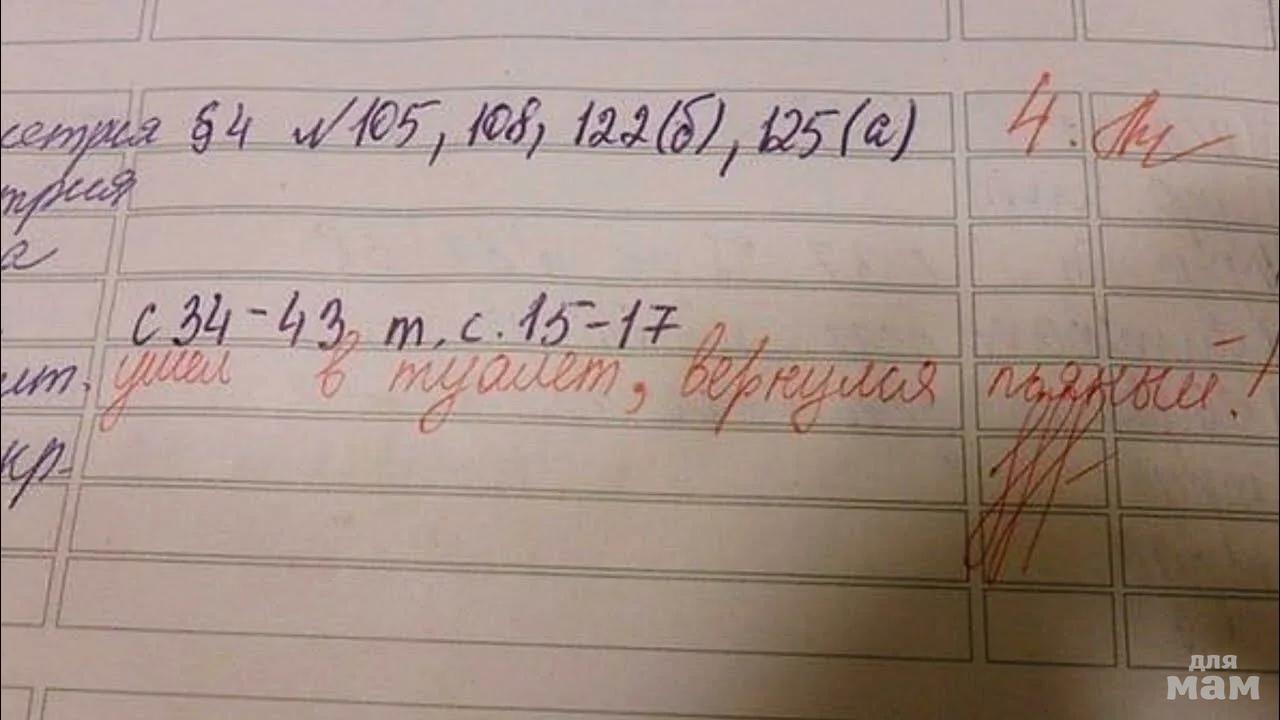 сетрия §4 №105, 108, 122(б), 125(а) 4.
трия
а
с 34-43 т. с. 15-17
лит. ушел в туалет, вернулся пьяный!
кр.
для
мам